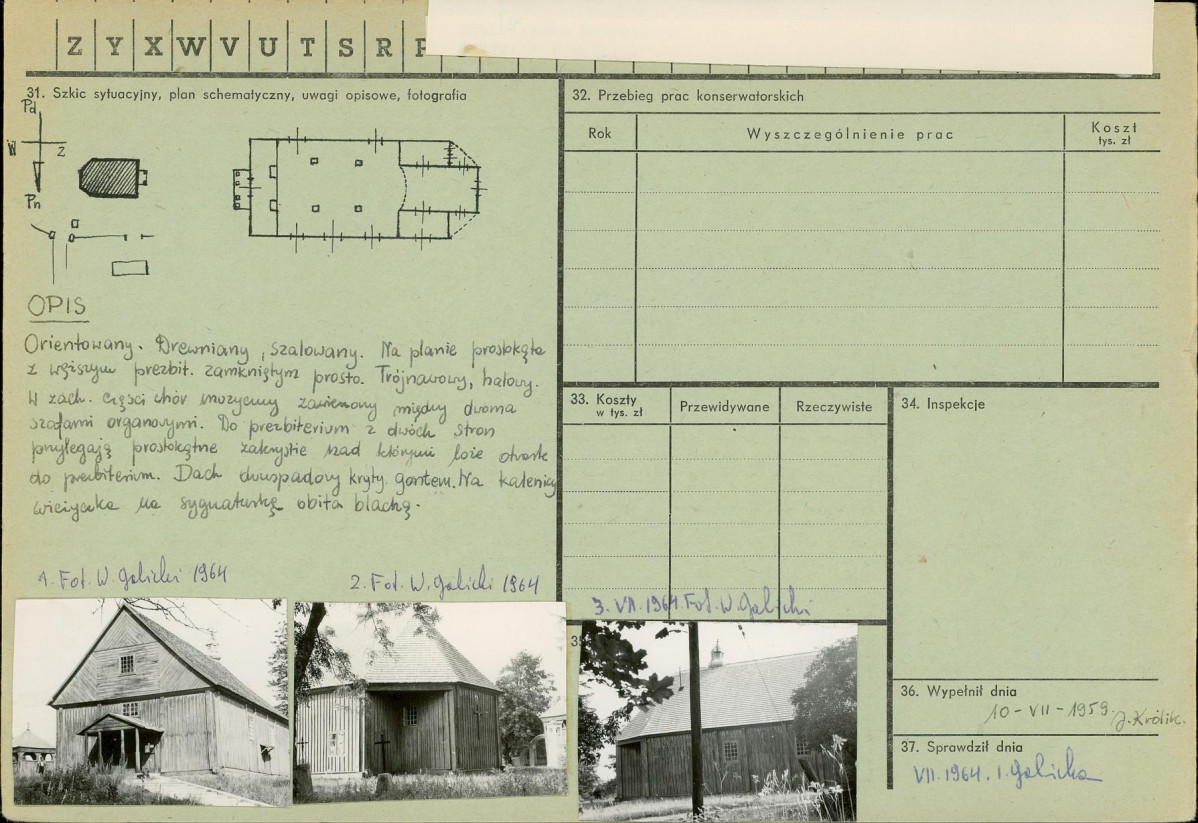 Z Y X W V U T S R P
31. Szkic sytuacyjny, plan schematyczny, uwagi opisowe, fotografia
Pd
W Z
Pn
OPIS
Orientowany. Drewniany, szalowany. Na planie prostokąta
z węższym prezbit. zamkniętym prosto. Trójnawowy, halowy.
W zach. części chór muzyczny zawieszony między dwoma
szafami organowymi. Do prezbiterium z dwóch stron
przylegają prostokątne zakrystie nad którymi loże otwarte
do prezbiterium. Dach dwuspadowy kryty gontem. Na kalenicy
wieżyczka na sygnaturkę obita blachą.
1. Fot. W. Galicki 1964
2. Fot. W. Galicki 1964
3. VII. 1964. Fot. W. Galicki
32. Przebieg prac konserwatorskich
Rok Wyszczególnienie prac Koszt
tys. zł
33. Koszty
w tys. zł Przewidywane Rzeczywiste
34. Inspekcje
3
36. Wypełnił dnia
10-VII-1959. J. Królik.
37. Sprawdził dnia
VII. 1964. I. Galicka